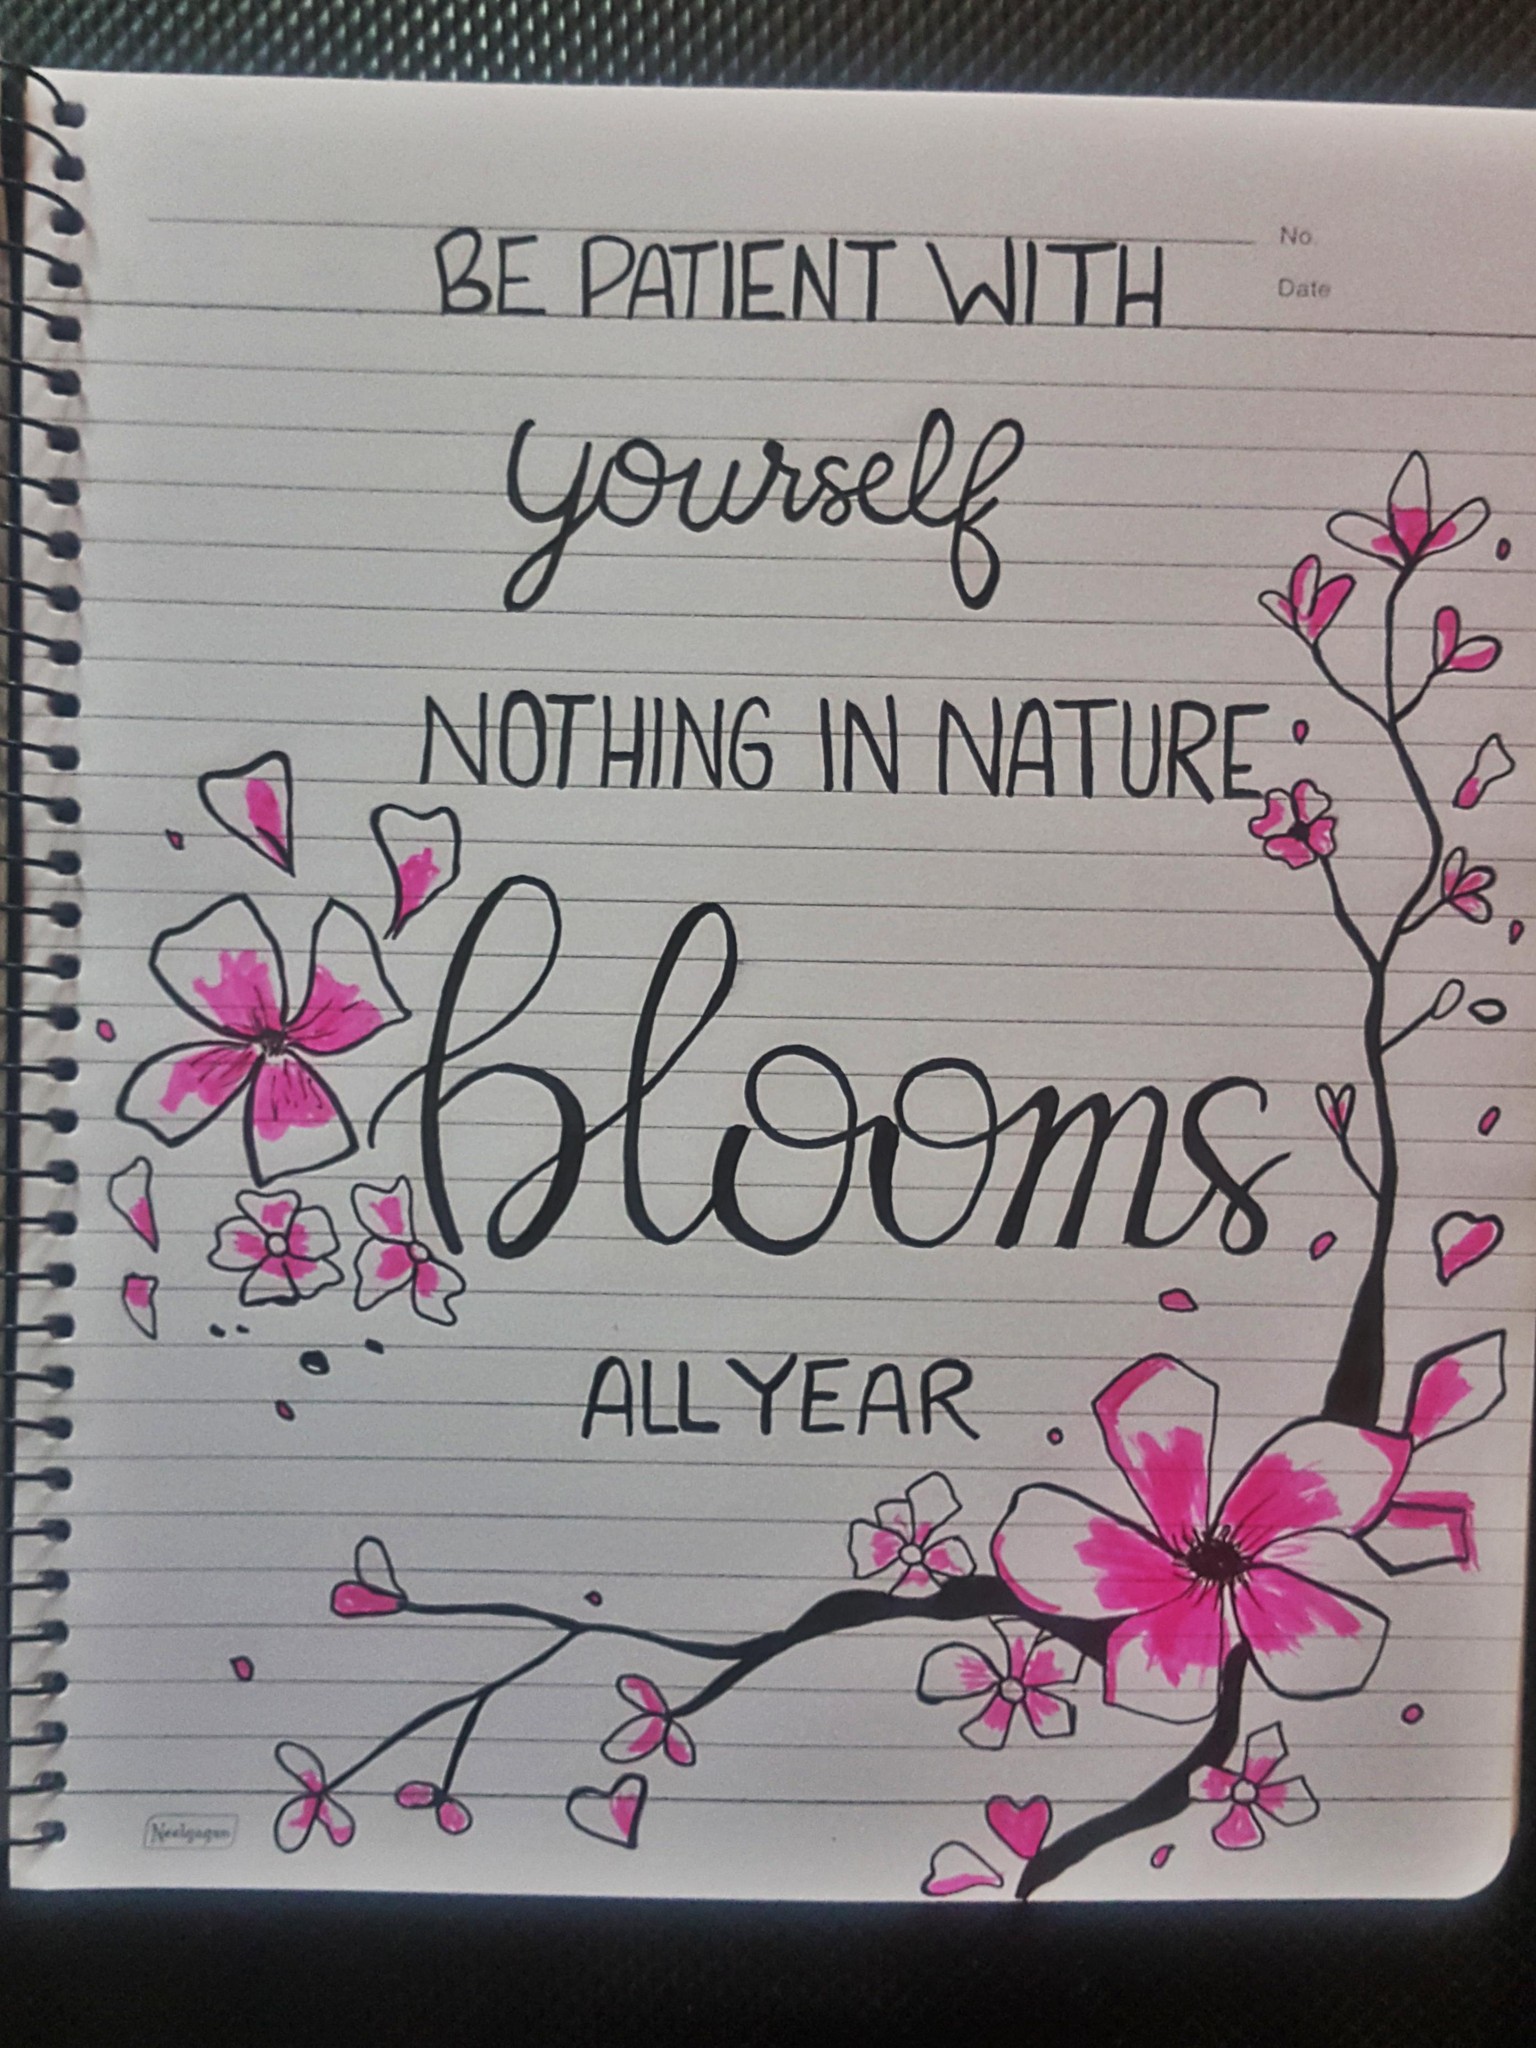 No
BE PATIENT WITH
Date
yourself
NOTHING IN NATURE
blooms
ALL YEAR
Neelgagan